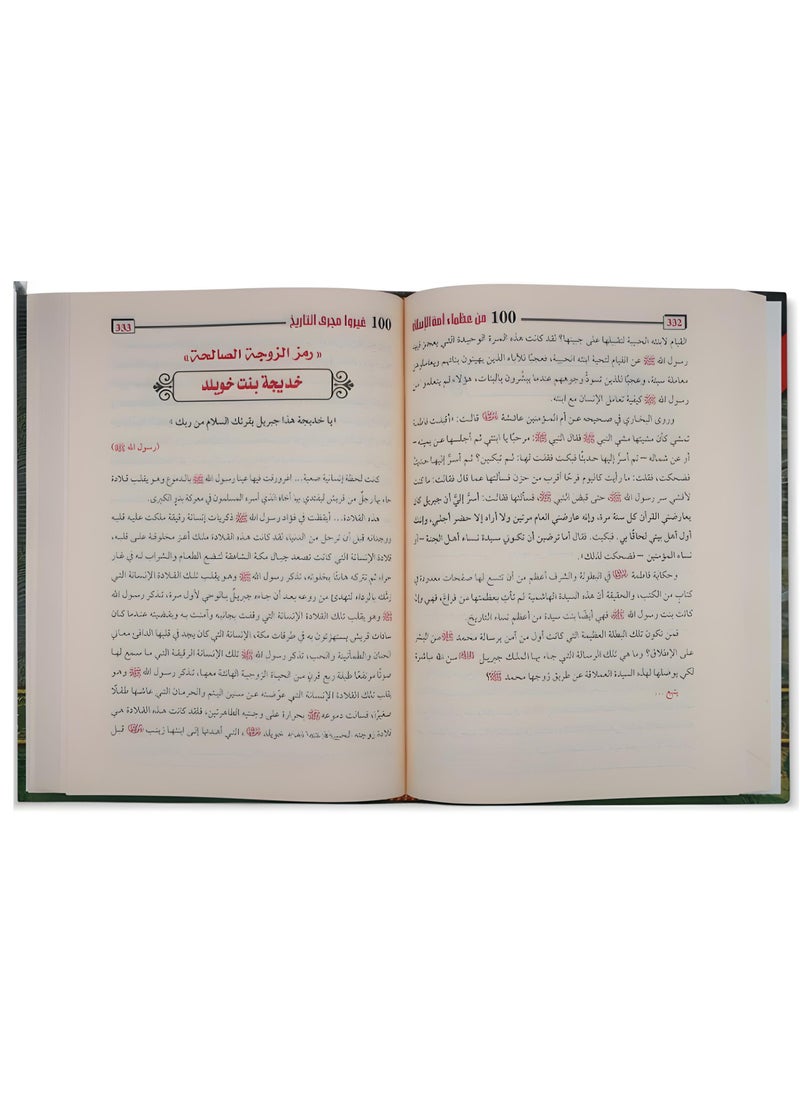 332
100 من عظماء أمة الإسلام
القيام لابنته الحبيبة لتقبيلها على جبينها؟ لقد كانت هذه المرة الوحيدة التي يعجز فيها
رسول الله ﷺ عن القيام لتحية ابنته الحبيبة، فعجبًا للآباء الذين يهينون بناتهم ويعاملوهن
معاملة سيئة، وعجبًا للذين تسودُّ وجوههم عندما يبشَّرون بالبنات، هؤلاء لم يتعلموا من
رسول الله ﷺ كيفية تعامل الإنسان مع ابنته.
وروى البخاري في صحيحه عن أم المؤمنين عائشة قالت: «أقبلت فاطمة
تمشي كأن مشيتها مشي النبي ﷺ فقال النبي ﷺ: مرحبًا يا ابنتي ثم أجلسها عن يمينه -
أو عن شماله - ثم أسرَّ إليها حديثًا فبكت فقلت لها: لم تبكين؟ ثم أسرَّ إليها حديثًا
فضحكت، فقلت: ما رأيت كاليوم فرحًا أقرب من حزن فسألتها عما قال فقالت: ما كنت
لأفشي سر رسول الله ﷺ حتى قبض النبي ﷺ، فسألتها فقالت: أسرَّ إليَّ أن جبريل كان
يعارضني القرآن كل سنة مرة، وإنه عارضني العام مرتين ولا أراه إلا حضر أجلي، وإنك
أول أهل بيتي لحاقًا بي. فبكيت. فقال أما ترضين أن تكوني سيدة نساء أهل الجنة - أو
نساء المؤمنين - فضحكت لذلك».
وحكاية فاطمة في البطولة والشرف أعظم من أن تتسع لها صفحات معدودة في
كتاب من الكتب، والحقيقة أن هذه السيدة الهاشمية لم تأتِ بعظمتها من فراغ، فهي وإن
كانت بنت رسول الله ﷺ فهي أيضًا بنت سيدة من أعظم نساء التاريخ.
فمن تكون تلك البطلة العظيمة التي كانت أول من آمن برسالة محمد ﷺ من البشر
على الإطلاق؟ وما هي تلك الرسالة التي جاء بها الملك جبريل من الله مباشرة
لكي يوصلها لهذه السيدة العملاقة عن طريق زوجها محمد ﷺ؟
يتبع ...
100 غيروا مجرى التاريخ
333
«رمز الزوجة الصالحة»
خديجة بنت خويلد
«يا خديجة هذا جبريل يقرئك السلام من ربك»
(رسول الله ﷺ)
كانت لحظة إنسانية صعبة... اغرورقت فيها عينا رسول الله ﷺ بالدموع وهو يقلب قلادة
جاء بها رجل من قريش ليفتدي بها أخاه الذي أسره المسلمون في معركة بدرٍ الكبرى.
هذه القلادة... أيقظت في فؤاد رسول الله ﷺ ذكريات إنسانة رقيقة ملكت عليه قلبه
ووجدانه قبل أن ترحل من الدنيا، لقد كانت هذه القلادة ملك أعز مخلوقة على قلبه،
قلادة الإنسانة التي كانت تصعد جبال مكة الشاهقة لتضع الطعام والشراب له في غار
حراء ثم تتركه هانئًا بخلوته، تذكر رسول الله ﷺ وهو يقلب تلك القلادة الإنسانة التي
زمَّلته بالرداء لتهدئ من روعه بعد أن جاءه جبريلُ بالوحي لأول مرة، تذكر رسول الله
ﷺ وهو يقلب تلك القلادة الإنسانة التي وقفت بجانبه وآمنت به وبقضيته عندما كان
سادات قريش يستهزئون به في طرقات مكة، الإنسانة التي كان يجد في قلبها الدافئ معاني
الحنان والطمأنينة والحب، تذكر رسول الله ﷺ تلك الإنسانة الرقيقة التي ما سمع لها
صوتًا مرتفعًا طيلة ربع قرنٍ من الحياة الزوجية الهانئة معها، تذكر رسول الله ﷺ وهو
يقلب تلك القلادة الإنسانة التي عوَّضته عن سنين اليتم والحرمان التي عاشها طفلًا
صغيرًا، فسالت دموعه ﷺ بحرارة على وجنتيه الطاهرتين، فلقد كانت هذه القلادة هي
قلادة زوجته الحبيبة خديجة بنت خويلد، التي أهدتها إلى ابنتها زينب قبل